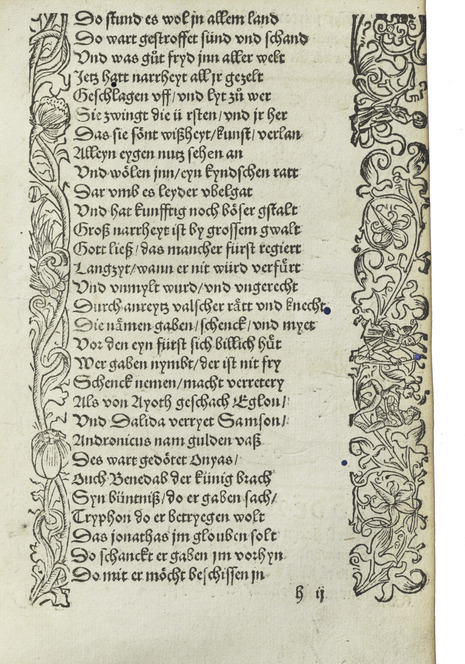 Do stund es wol jn allem land
Do wart gestroffet sünd vnd schand
Vnd was gůt fryd jnn aller welt
Jetz hatt narrheyt all jr gezelt
Geschlagen vff / vnd lyt zů wer
Sie zwingt die fürsten / vnd jr her
Das sie sönt wißheyt / kunst / verlan
Alleyn eygen nutz sehen an
Vnd wölen jnn / eyn kyndschen ratt
Dar vmb es leyder vbel gat
Vnd hat kunfftig noch böser gstalt
Groß narrheyt ist by grossem gwalt
Gott ließ / das mancher fürst regiert
Langzyt / wann er nit würd verfürt
Vnd vnmylt wurd / vnd vngerecht
Durch anreytz valscher rätt vnd knecht
Die nämen gaben / schenck / vnd myet
Vor den eyn fürst sich billich hüt
Wer gaben nymbt / der ist nit fry
Schenck nemen / macht verretery
Als von Ayoth geschach Eglon /
Vnd Dalida verryet Samson /
Andronicus nam gulden vaß
Des wart gedötet Onyas /
Ouch Benedab der künig brach
Syn büntniß / do er gaben sach /
Tryphon do er betryegen wolt
Das jonathas jm glouben solt
Do schanckt er gaben jm vorhyn
Do mit er möcht beschissen jn
h ij